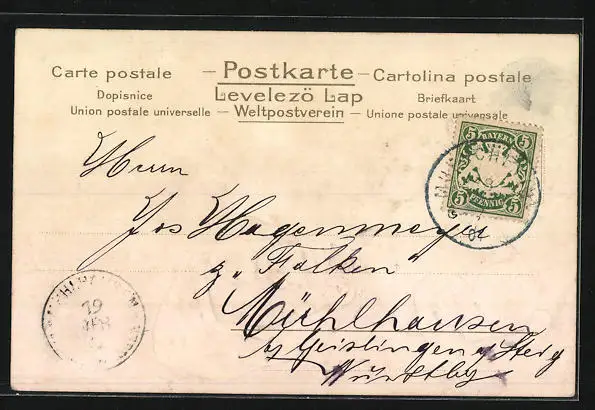 Carte postale — Postkarte — Cartolina postale
Dopisnice Levelezö Lap Briefkaart
Union postale universelle — Weltpostverein — Unione postale universale
5 BAYERN 5
5 PFENNIG 5
Herrn
Jos Hagenmeyer
z. „Falken"
Mühlhausen
b/ Geislingen a/ Steig
Württbg
19